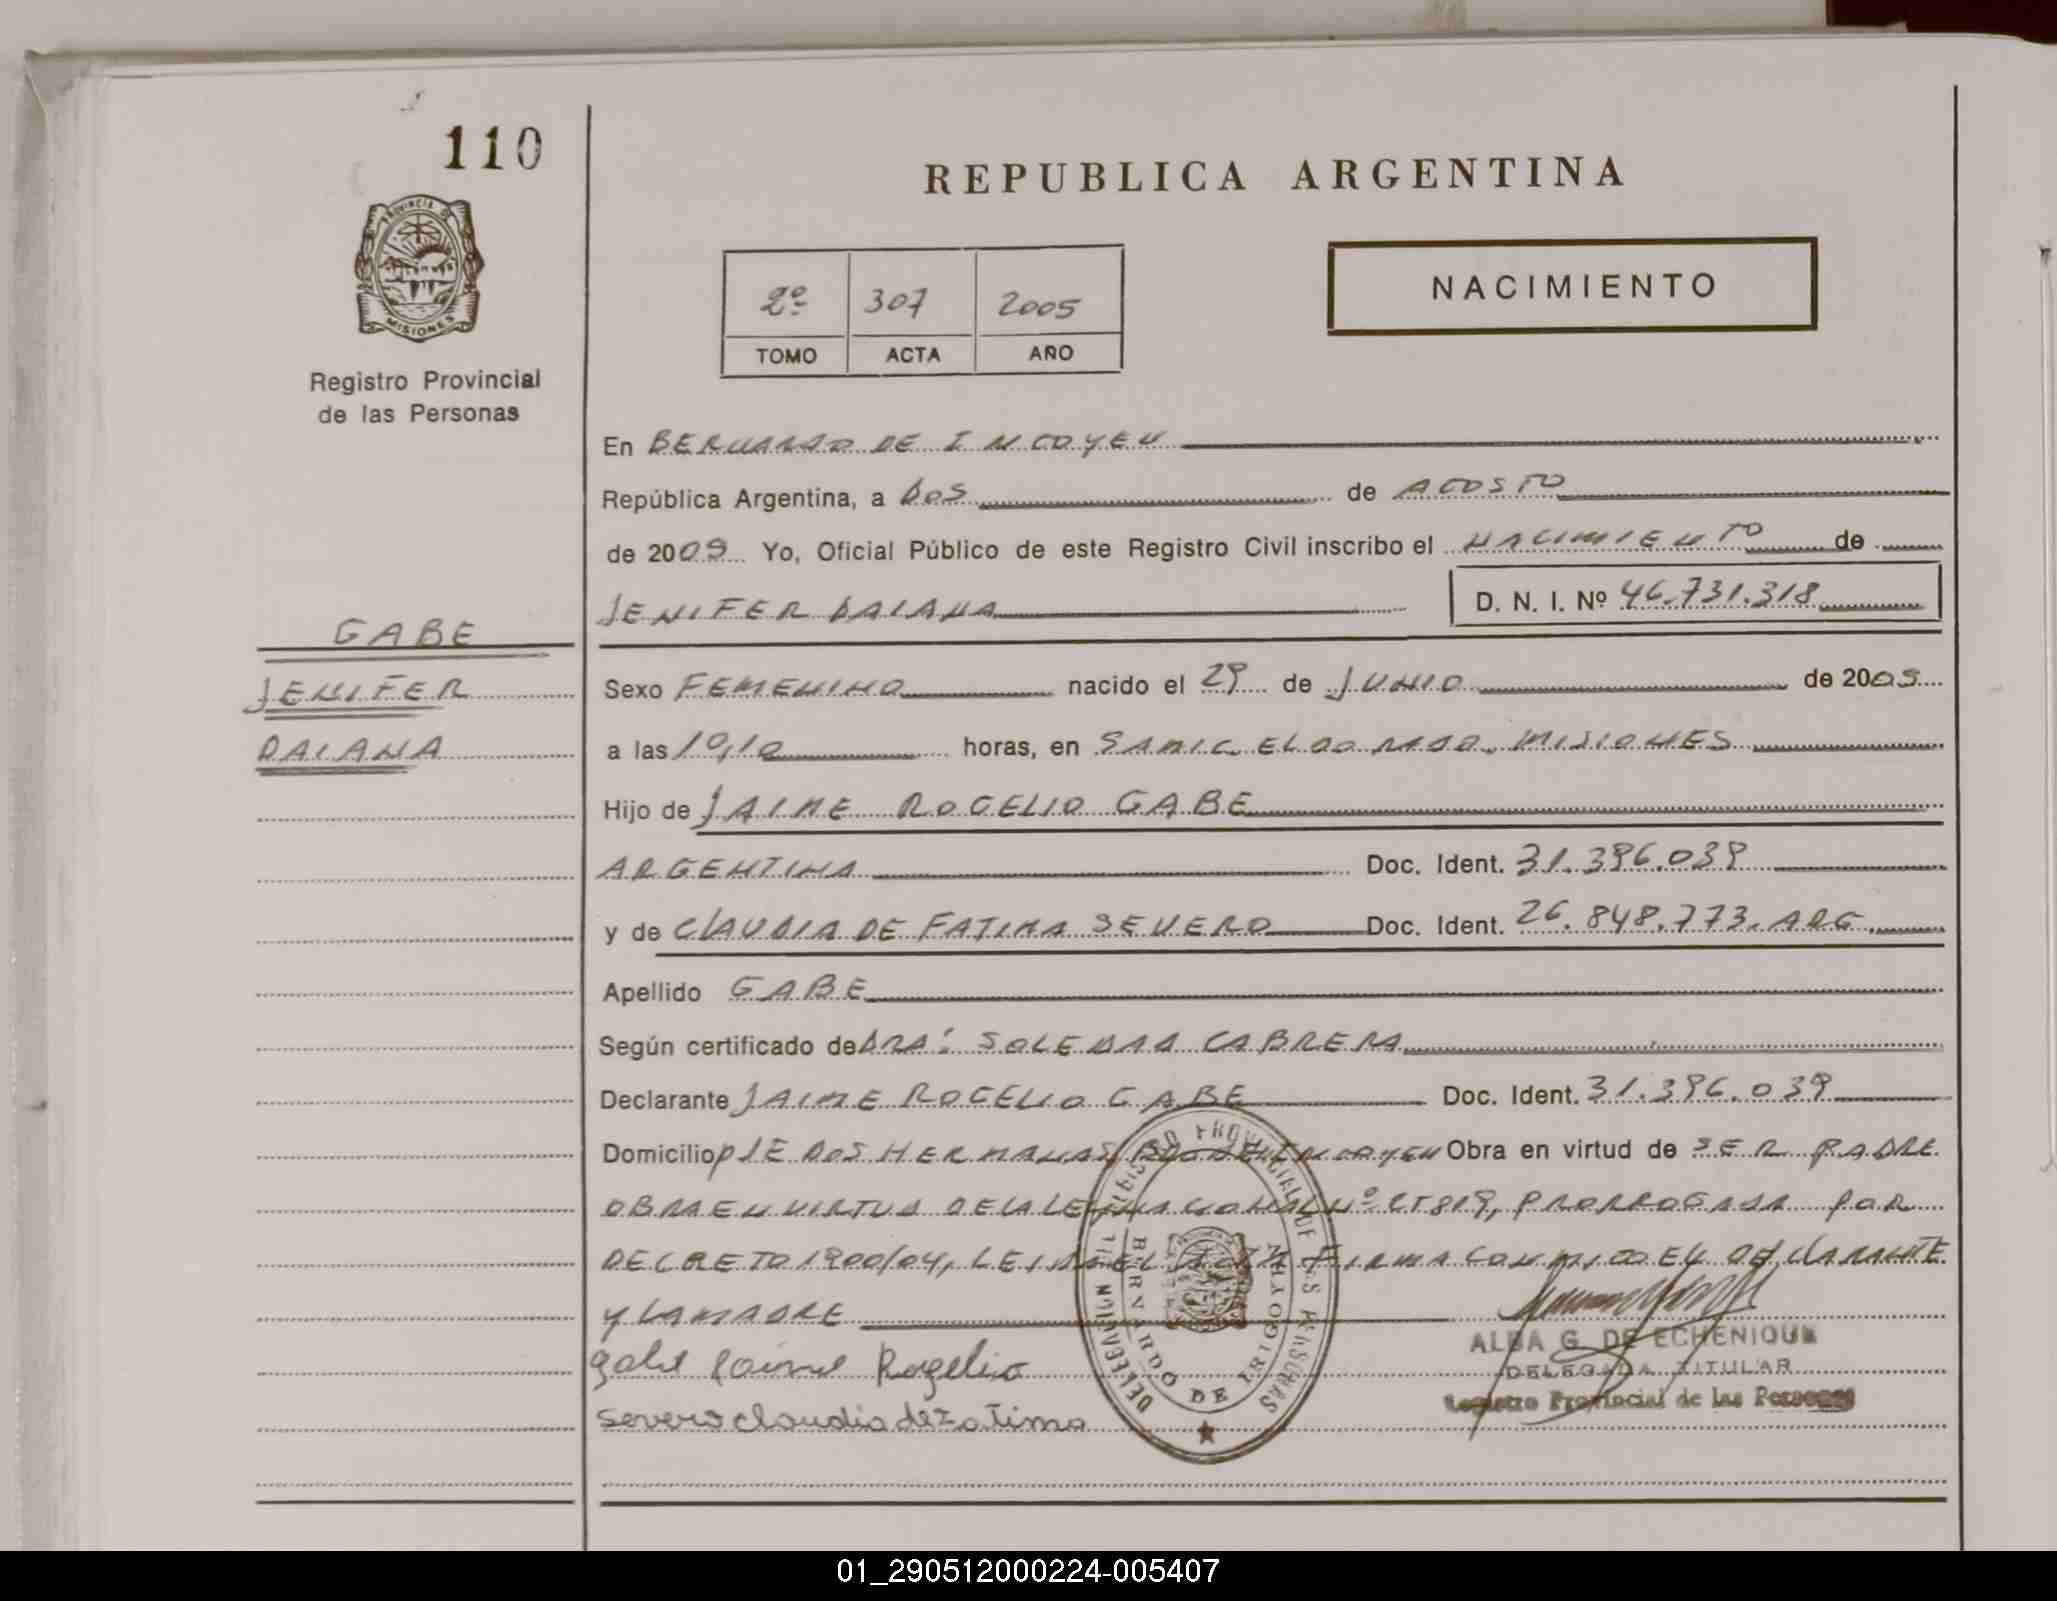 110
REPUBLICA ARGENTINA
PROVINCIA DE
MISIONES
Registro Provincial
de las Personas
NACIMIENTO
2º 307 2005
TOMO ACTA AÑO
En BERNARDO DE IRIGOYEN
República Argentina, a DOS de AGOSTO
de 2005 Yo, Oficial Público de este Registro Civil inscribo el NACIMIENTO de
JENIFER DAIANA D. N. I. Nº 46.731.318
GABE
JENIFER
DAIANA
Sexo FEMENINO nacido el 29 de JUNIO de 2005
a las 10,10 horas, en SAMIC ELDORADO. MISIONES
Hijo de JAIME ROGELIO GABE
ARGENTINA Doc. Ident. 31.396.039
y de CLAUDIA DE FATIMA SEVERO Doc. Ident. 26.848.773. ARG.
Apellido GABE
Según certificado de DRA: SOLEDAD CABRERA
Declarante JAIME ROGELIO GABE Doc. Ident. 31.396.039
Domicilio PJE DOS HERMANAS BDO DE IRIGOYEN Obra en virtud de SER PADRE
OBRA EN VIRTUD DE LA LEY NACIONAL Nº 25819, PRORROGADA POR
DECRETO 1900/04, LEIDA EL ACTA FIRMA CONMIGO EL DECLARANTE
Y LA MADRE
Gabe Jaime Rogelio
Severo Claudia de Fatima
REGISTRO PROVINCIAL DE LAS PERSONAS
DELEGACION
BERNARDO DE IRIGOYEN
ALBA G. DE ECHENIQUE
DELEGADA TITULAR
Registro Provincial de las Personas
01_290512000224-005407